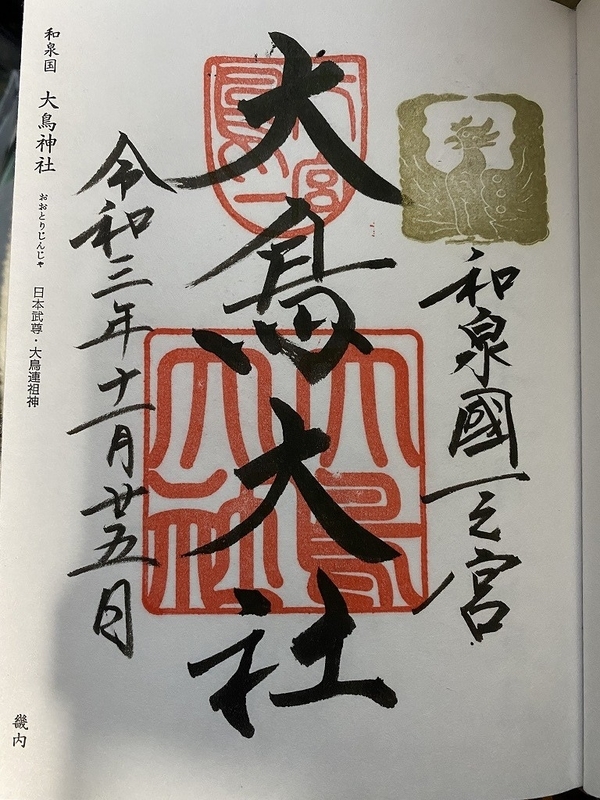 和泉國一之宮
大鳥大社
大鳥大社
令和三年十一月廿五日
和泉国 大鳥神社 おおとりじんじゃ 日本武尊・大鳥連祖神
畿内